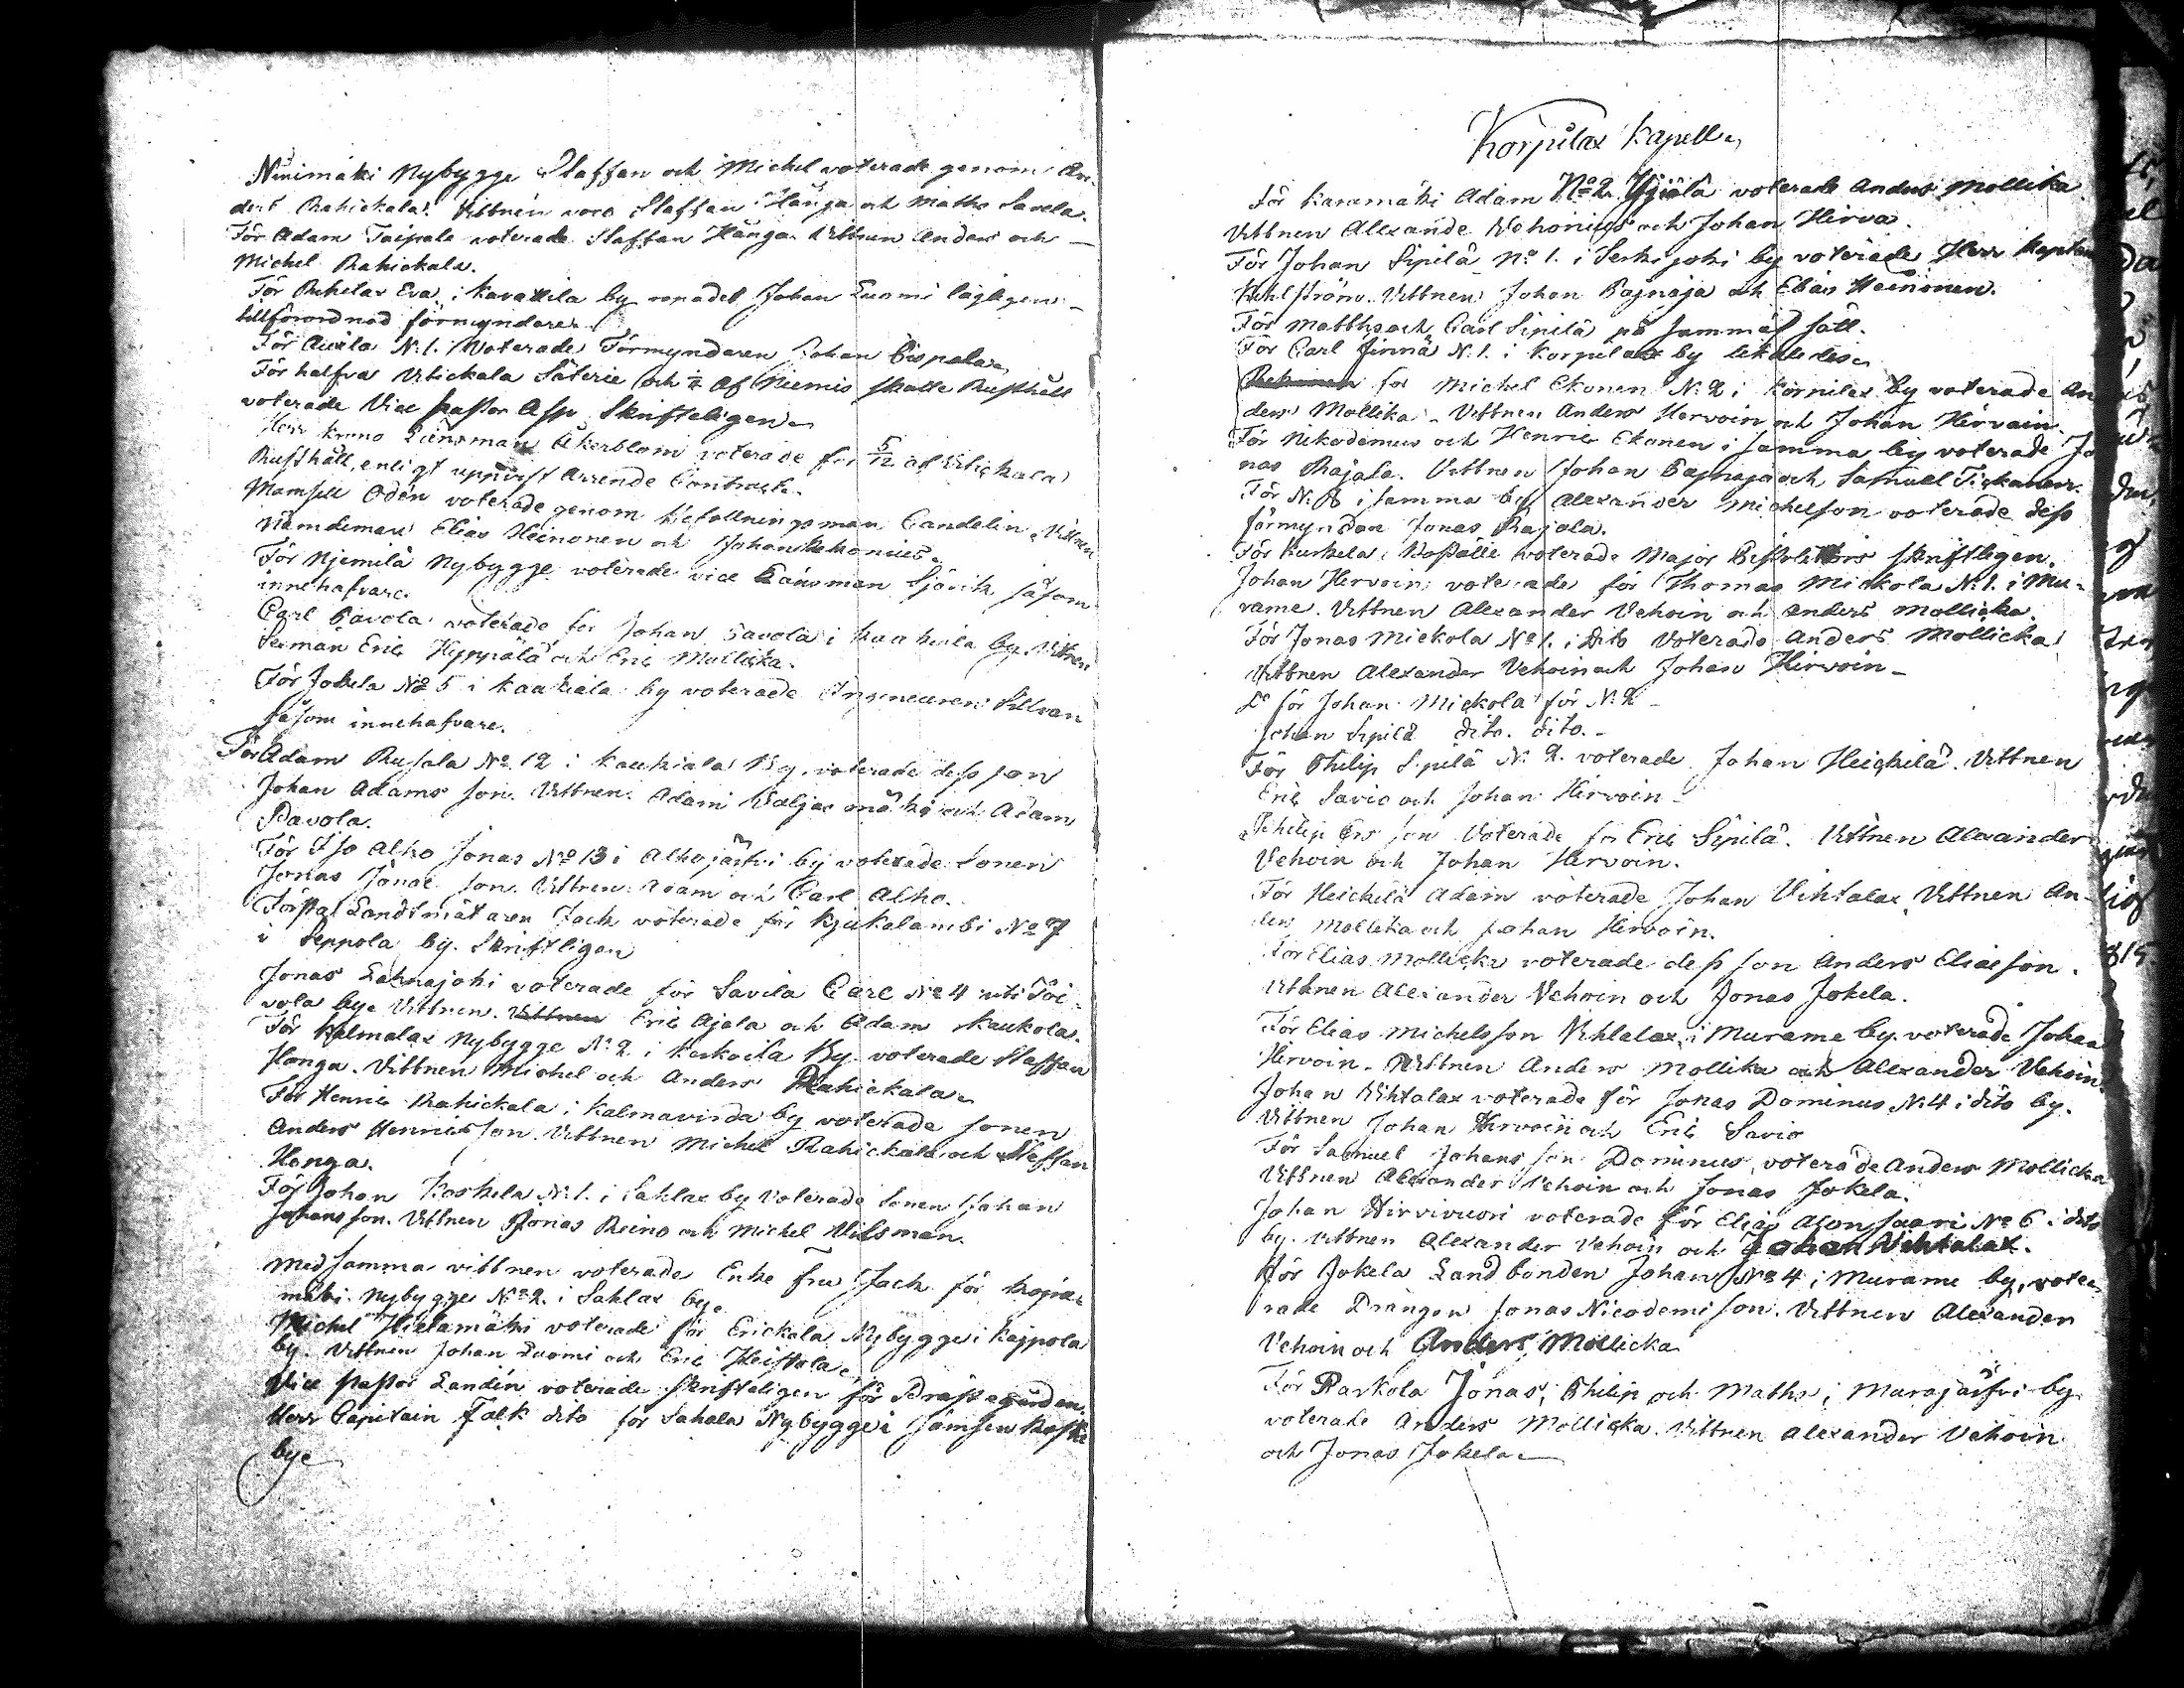 Niinimäki Nybygge Staffan och Michel voterade genom An-
ders Rahickala. Vittnen voro Staffan Hånga och Maths Savela.
För Adam Taipale voterade Staffan Hånga Vittnen Anders och
Michel Rahickala.
För Eva i Kavattila by Johan Luomi lagligen
tillförordnad förmyndare.
För Auvila N:1. Voterade Förmyndaren Johan Eispala
För halfva Vitickala Säterie och 1/4 af Niemis skatte Rusthåll
voterade Vice pastor Asp Skrifteligen
Herr krono Länsman Åkerblom voterade för 5/12 af Vitickala
Rusthåll, enligt uppvist Arrende Contract.
Mamsell Odén voterade genom befallningsman Candelin. Vittnen
Nämdeman Elias Heinonen och Johan Vehonius
För Njemilä Nybygge voterade vice Länsman Sjövik såsom
innehafvare.
Carl Pavola voterade för Johan Pavola i kaukiala by. Vittnen
Erik Hyppälä och Eric Mollicka.
För Jokela No 5 i kaukiala by voterade Ingeneuren Silvan
såsom innehafvare.
För Adam Rusala No 12 i kaukiala By. voterade dess son
Johan Adams son. Vittnen. Adam och Adam
Pavola.
För Iso Alho Jonas No 13 i Alhojärfvi by voterade Sonen
Jonas Jonas son. Vittnen Adam och Carl Alho.
Första Landtmätaren Jack voterade för kjukalambi No 7
i Seppola by. Skriftligen
Jonas Lahnajoki voterade för Savila Carl No 4 uti Toi-
vola by. Vittnen. Vittnen Eric Ajala och Adam Kaukola.
För Kalmalax Nybygge N:2 i Keskoila By. voterade Staffan
Honga. Vittnen Michel och Anders Rahickala
För Henric Rahickala i Kalmavirda by voterade sonen
Anders Henrics son Vittnen Michel Rahickala och Staffan
Honga.
För Johan Koskela N:1. i Saklax by Voterade Sonen Johan
Johans son. Vittnen Jonas Reino och Michel Vilsman.
Med samma vittnen voterade Enke fru Jack för
mäki nybygge No 2. i Saklax by
Michel Hietamäki voterade för Erickala Nybygge i kajpola
by. Vittnen Johan Luomi och Eric Heistola
Vice pastor Landén voterade skrifteligen för Prästegården.
Herr Capitain Falk dito för Sahala Nybygge i Jämsen koski
bye
Korpilax Kapell
För Kavamäki Adam No 2. voterade Anders Mollika
Vittnen Alexander Vehonius och Johan Hirva
För Johan Sipilä No 1. i Serkijoki by voterade Herr Kapten
Kihlström. Vittnen Johan Pajnaja och Elias Heinonen.
För Matths och Carl Sipilä på samma sätt.
För Carl Jinnä N:1. i Korpilax by likaledes
för Michel Ekonen N:2 i Korpilax by voterade An
ders Mollika. Vittnen Anders Hervoin och Johan Hirvoin.
För Nikodemus och Henric Ekonen i samma by voterade Jo
nas Rajala. Vittnen Johan Pajnaja och Samuel Tickanen.
För N:8 i samma by Alexander Michelson voterade dess
förmyndare Jonas Rajala.
För Kuskela Boställe voterade Major skriftligen.
Johan Hervoin voterade för Thomas Mickola N:1. i Mu-
rame. Vittnen Alexander Vehoin och Anders Mollicka
För Jonas Mickola No 1. i dito Voterade Anders Mollicka
Vittnen Alexander Vehoin och Johan Hirvoin
Do för Johan Mickola för N:2
Johan Sipilä dito. dito.
För Philip Sipilä N:2. voterade Johan Heickilä. Vittnen
Eric Savio och Johan Hirvoin
Philip Ers son Voterade för Eric Sipilä. Vittnen Alexander
Vehoin och Johan Hervoin.
För Heickilä Adam voterade Johan Vihtalax. Vittnen An-
ders Mollika och Johan Hirvoin.
För Elias Mollicka voterade dess son Anders Elias son.
Vittnen Alexander Vehoin och Jonas Jokela.
För Elias Michelsson Vihtalax i Murame by. voterade Johan
Hirvoin. Vittnen Anders Mollika och Alexander Vehoin.
Johan Vihtalax voterade för Jonas Dominus N:4 i dito by.
Vittnen Johan Hirvoin och Eric Savio
För Samuel Johans son Dominus, voterade Anders Mollicka
Vittnen Alexander Vehoin och Jonas Jokela.
Johan Hirvivuori voterade för Elias saari No 6 i dito
by. Vittnen Alexander Vehoin och Johan Vihtalax.
För Jokela Landbonden Johan No 4 i Murame by, vote-
rade Drängen Jonas Nicodemi son. Vittnen Alexander
Vehoin och Anders Mollicka
För Raskola Jonas, Philip och Maths i Murajärfvi by
voterade Anders Mollicka. Vittnen Alexander Vehoin
och Jonas Jokela